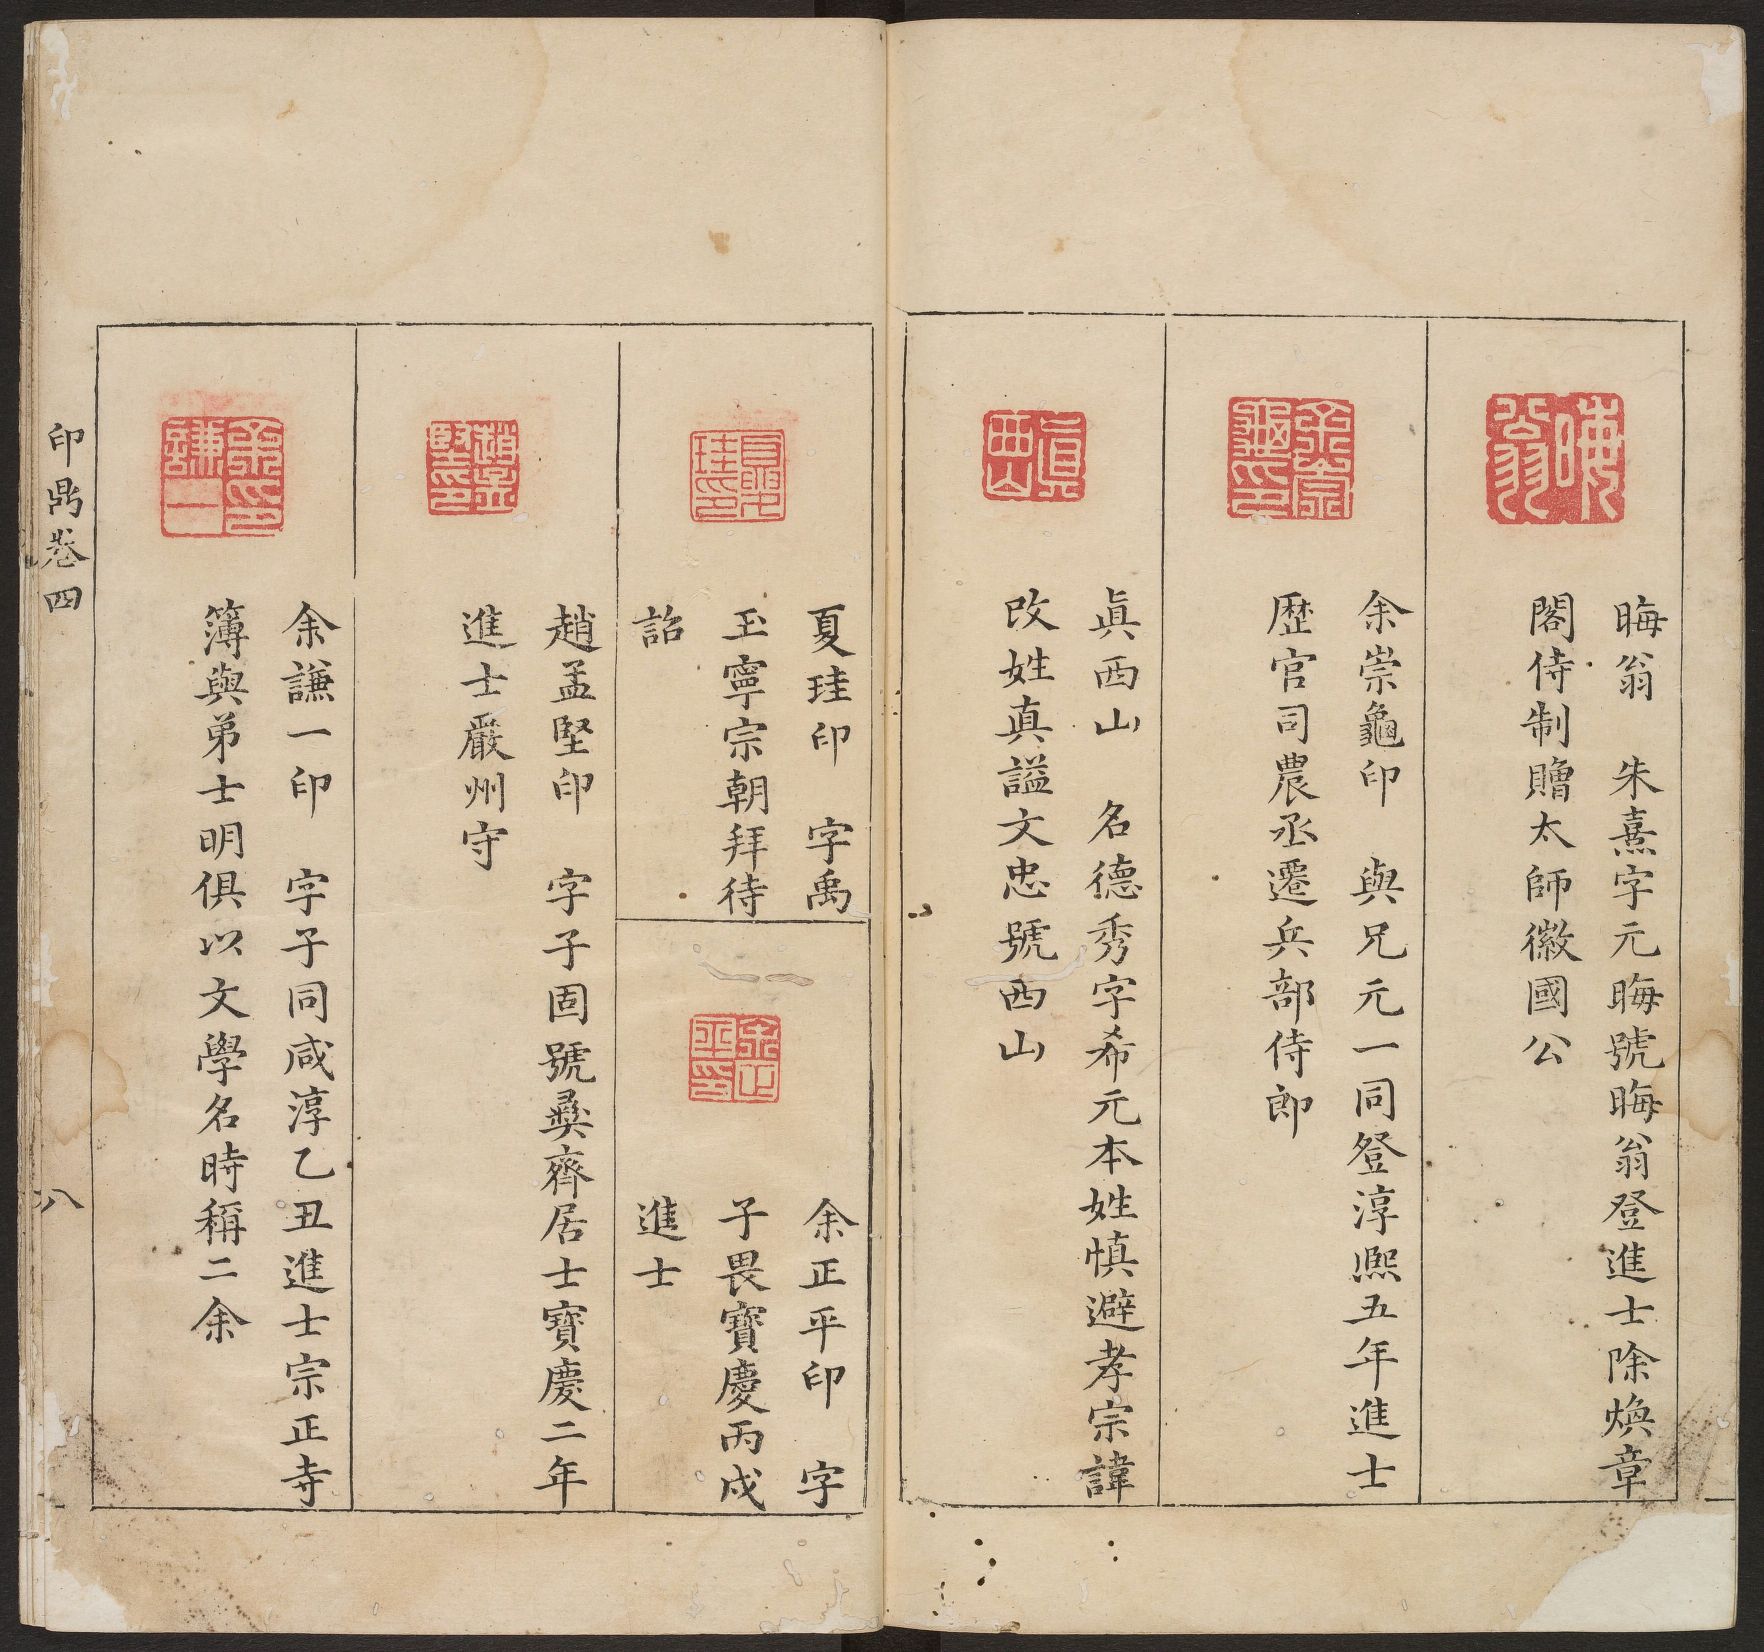 晦翁
晦翁　朱熹字元晦號晦翁登進士除煥章
閣侍制贈太師徽國公
余崇龜印
余崇龜印　與兄元一同登淳熈五年進士
歷官司農丞遷兵部侍郎
眞西山
眞西山　名德秀字希元本姓慎避孝宗諱
改姓真謚文忠號西山
夏珪印　字禹
玉寧宗朝拜待
詔
余正平印
余正平印　字
子畏寶慶丙戍
進士
趙孟堅印
趙孟堅印　字子固號彜齊居士寶慶二年
進士嚴州守
余謙一印　字子同咸淳乙丑進士宗正寺
簿與弟士明俱以文學名時稱二余
印鼎卷四
八